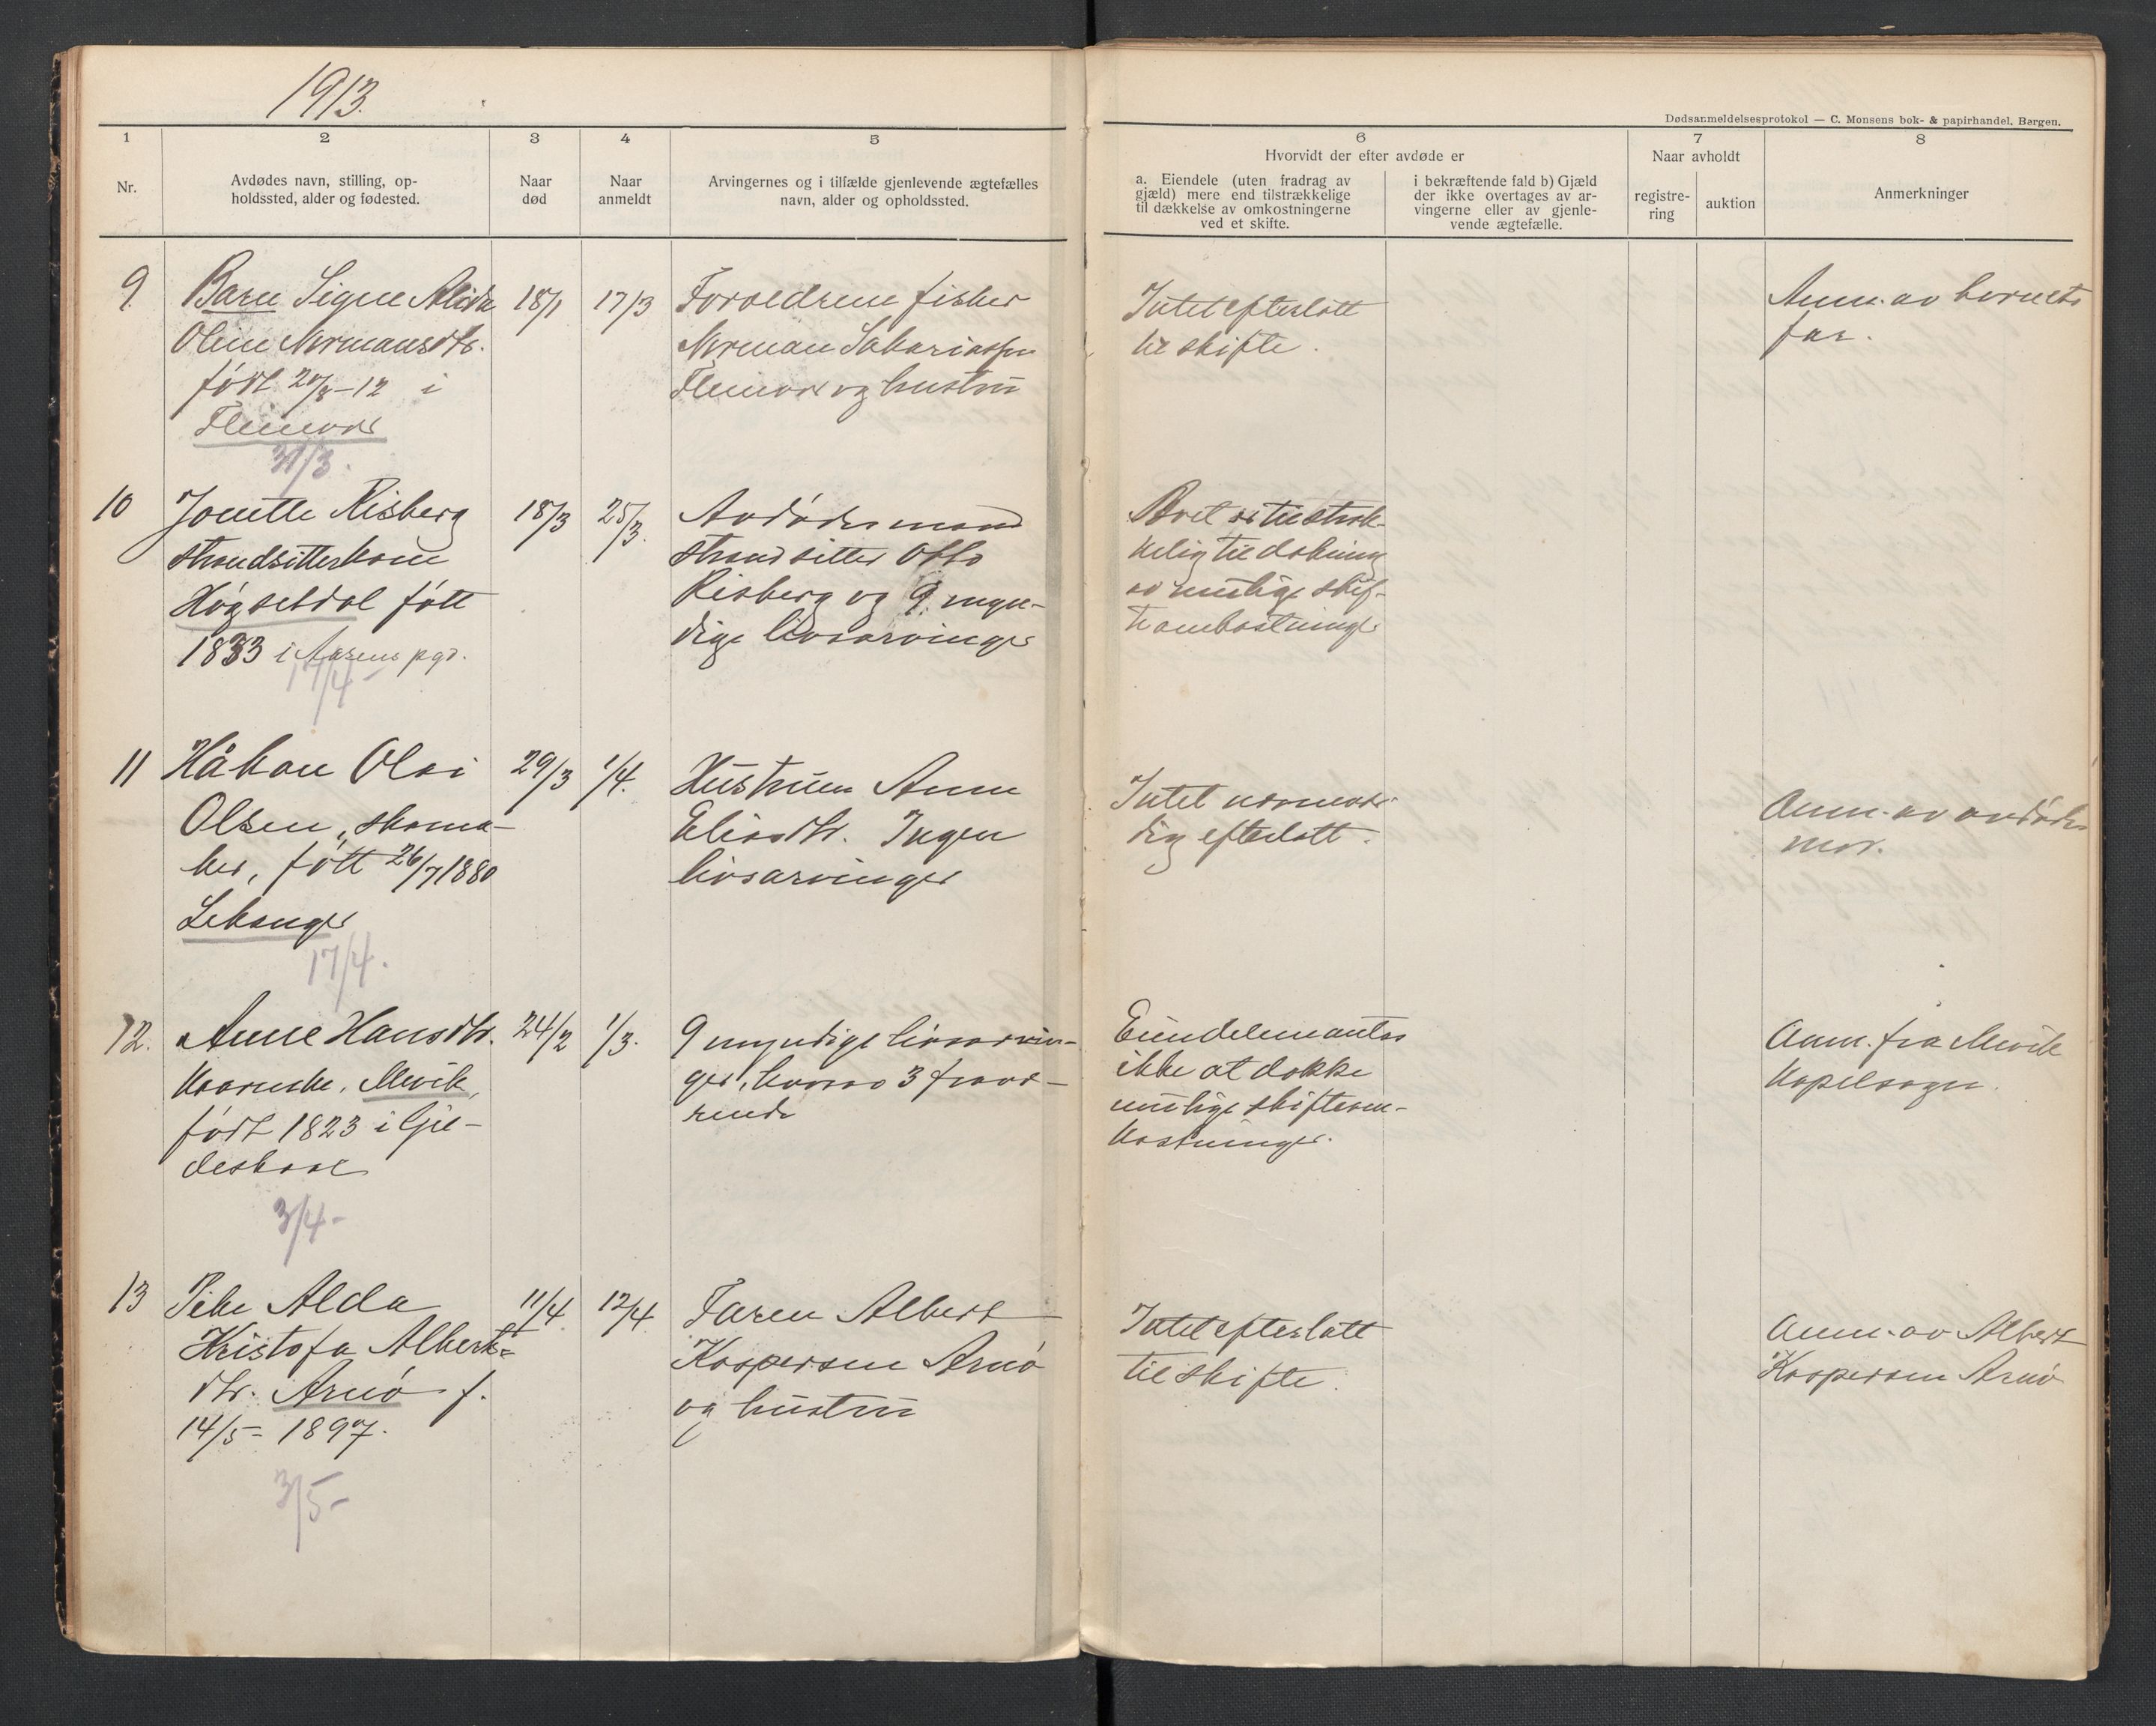 1913.
Dødsanmeldelsesprotokol — C. Monsens bok- & papirhandel, Bergen.
1
2
3
4
5
6
7
8
Nr.
Avdødes navn, stilling, op-
holdssted, alder og fødested.
Naar
død
Naar
anmeldt
Arvingernes og i tilfælde gjenlevende ægtefælles
navn, alder og opholdssted.
Hvorvidt der efter avdøde er
a. Eiendele (uten fradrag av
gjæld) mere end tilstrækkelige
til dækkelse av omkostningerne
ved et skifte.
i bekræftende fald b) Gjæld
der ikke overtages av ar-
vingerne eller av gjenle-
vende ægtefælle.
Naar avholdt
registre-
ring
auktion
Anmerkninger
9.
Barn Signe Alida
Oline Normansdtr.
født 20/8-12 i
Fleinvær
31/3.
18/1
17/3
Forældrene fisker
Norman Sakariassen
Fleinvær og hustru
Intet efterlatt
til skifte.
Anm. av barnets
far.
10
Jonette Risberg
strandsitterkone
Høgsetdal født
1833 i pgd.
17/4-
18/3
25/3.
Avdødes mand
strandsitter Otto
Risberg og 9 myn-
dige livsarvinger
Boet er tilstræk-
kelig til dækning
av mulige skif-
teomkostninger
11
Håkon Olai
Olsen, skoma-
ker, født 26/7 1880
Lekanger
17/4.
29/3
1/4.
Hustruen Anna
Eliasdtr. Ingen
livsarvinger
Intet nævnevær-
dig efterlatt.
Anm. av avdødes
mor.
12.
Anne Hansdtr.
Kaarneske, Mevik,
født 1823 i Gil-
deskaal
3/4-
24/2
1/3.
9 myndige livsarvin-
ger, hvorav 3 fravæ-
rende
Eiendele
ikke at dække
mulige skifteom-
kostninger.
Anm. fra Mevik
Kapelsogn.
13
Pike Alda
Kristofa Alberts=
dtr. Arnø f.
14/5- 1897.
3/5-
11/4
12/4
Faren Albert
Kaspersen Arnø
og hustru
Intet efterlatt
til skifte.
Anm. av Albert
Kaspersen Arnø